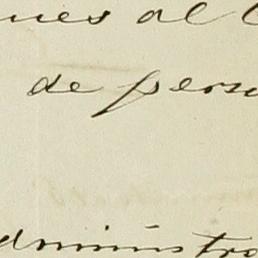 nes al
de pers
dministra